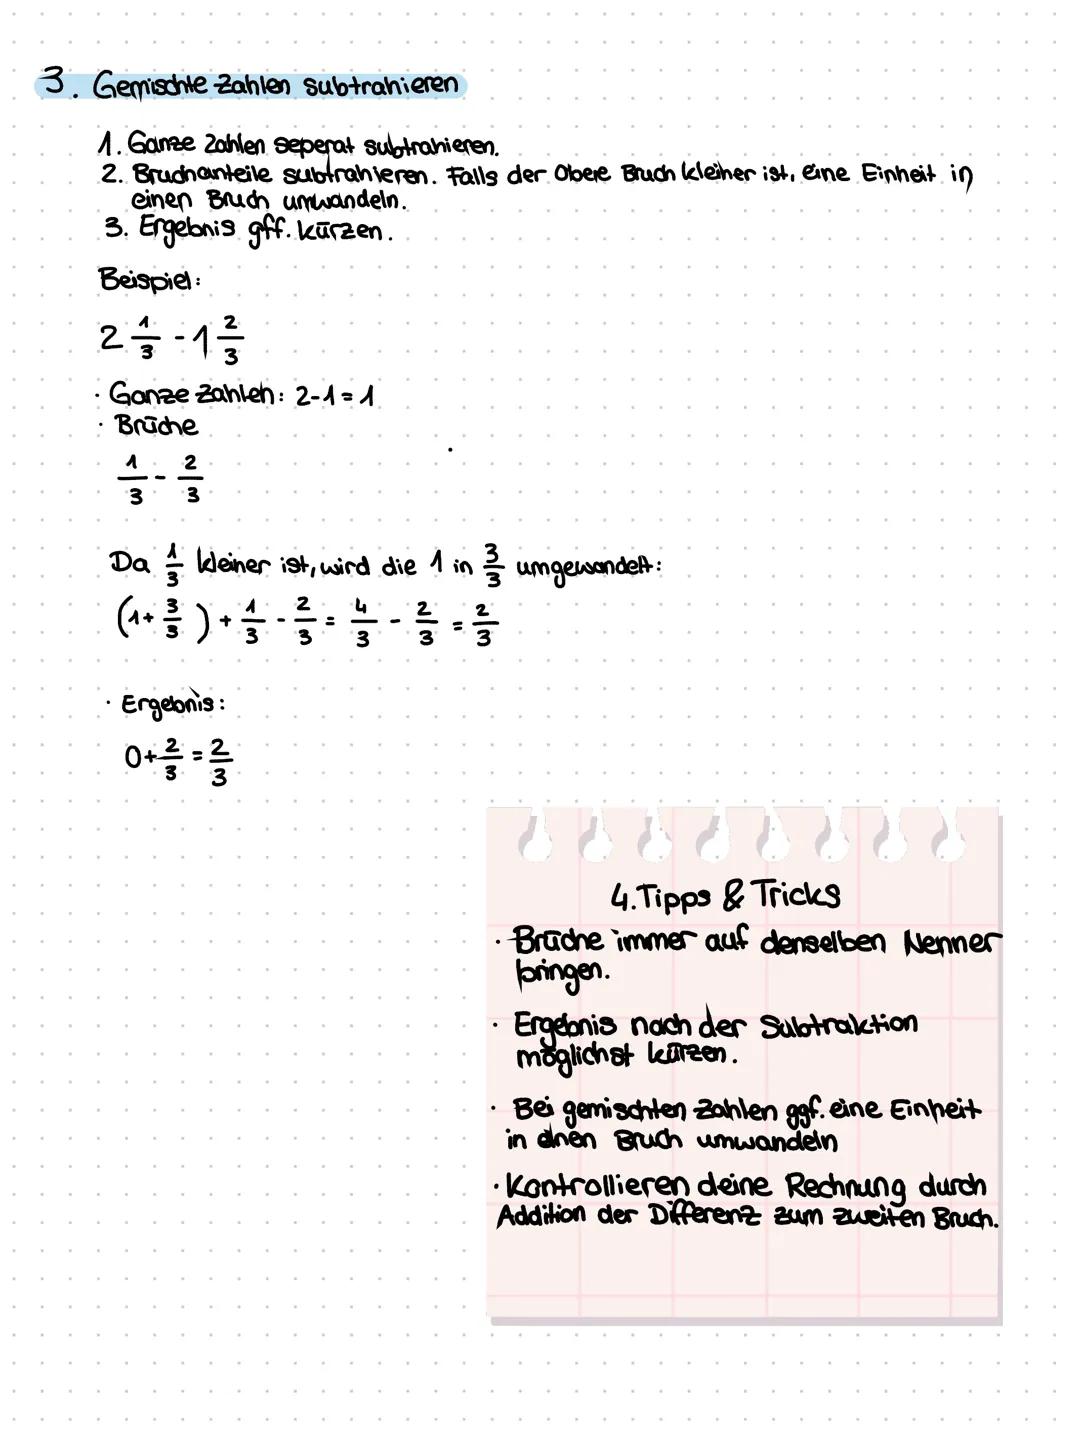 3. Gemischte Zahlen subtrahieren
1. Ganze Zahlen seperat subtrahieren.
2. Bruchanteile subtrahieren. Falls der Obere Bruch kleiner ist, eine Einheit in
einen Bruch umwandeln.
3. Ergebnis gff. kürzen.
Beispiel:
2 1/3 - 1 2/3
· Ganze Zahlen: 2-1=1
· Brüche
1/3 - 2/3
Da 1/3 kleiner ist, wird die 1 in 3/3 umgewandelt:
(1+ 3/3) + 1/3 - 2/3 = 4/3 - 2/3 = 2/3
· Ergebnis:
0+ 2/3 = 2/3
4. Tipps & Tricks
· Brüche immer auf denselben Nenner
bringen.
· Ergebnis nach der Subtraktion
möglichst kürzen.
· Bei gemischten Zahlen ggf. eine Einheit
in einen Bruch umwandeln
· Kontrollieren deine Rechnung durch
Addition der Differenz zum zweiten Bruch.